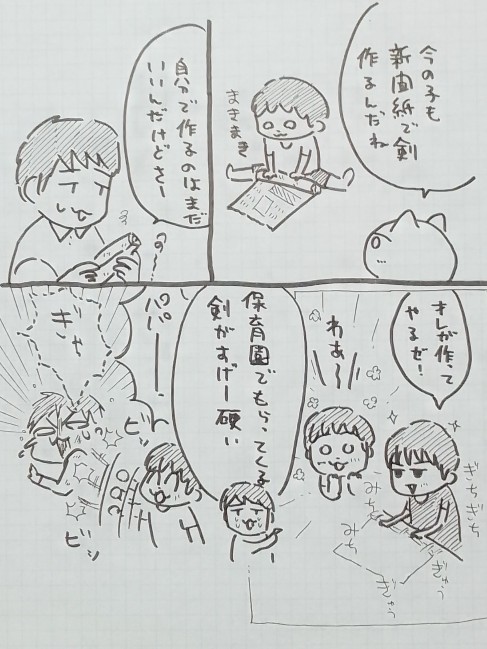 今の子も
新聞紙で剣
作るんだね
まきまき
自分で作るのはまだ
いいんだけどさー
オレが作って
やるぜ!
ぎちぎち
みち
みち
ぎゅう
ぎゅう
わあ〜
保育園でもらってくる
剣がすげー硬い
パパー
ビシ
ビシ
ぎゃ